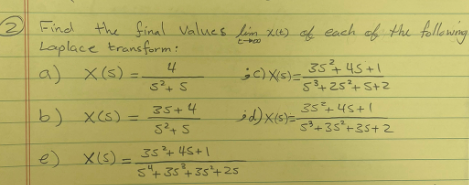 2 Find the final values lim x(t) of each of the following
t→∞
Laplace transform:
a) X(s) = 4 / s²+s ; c) X(s) = 3s²+4s+1 / s³+2s²+s+2
b) X(s) = 3s+4 / s²+s ; d) X(s) = 3s²+4s+1 / s³+3s²+3s+2
e) X(s) = 3s²+4s+1 / s⁴+3s³+3s²+2s